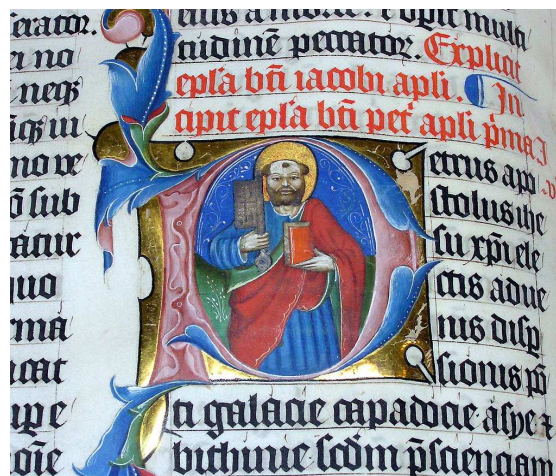 erator.
ei no
neqʒ
iqʒ iu
no ve
õ sub
atur
uo
rma
icat
upe
eius a morte. ⁊ opit multi
tudinē peccatoꝝ. Explicit
epl'a bt̄i iacobi apl'i. In
cipit epl'a bt̄i pet' apl'i p̄ma
Petrus apo
stolus ihe
su xp̄i ele
ctis adue
nis disp
sionis pō
ti galacie capadocie asye ⁊
bithinie scd̄m p̄scienciam